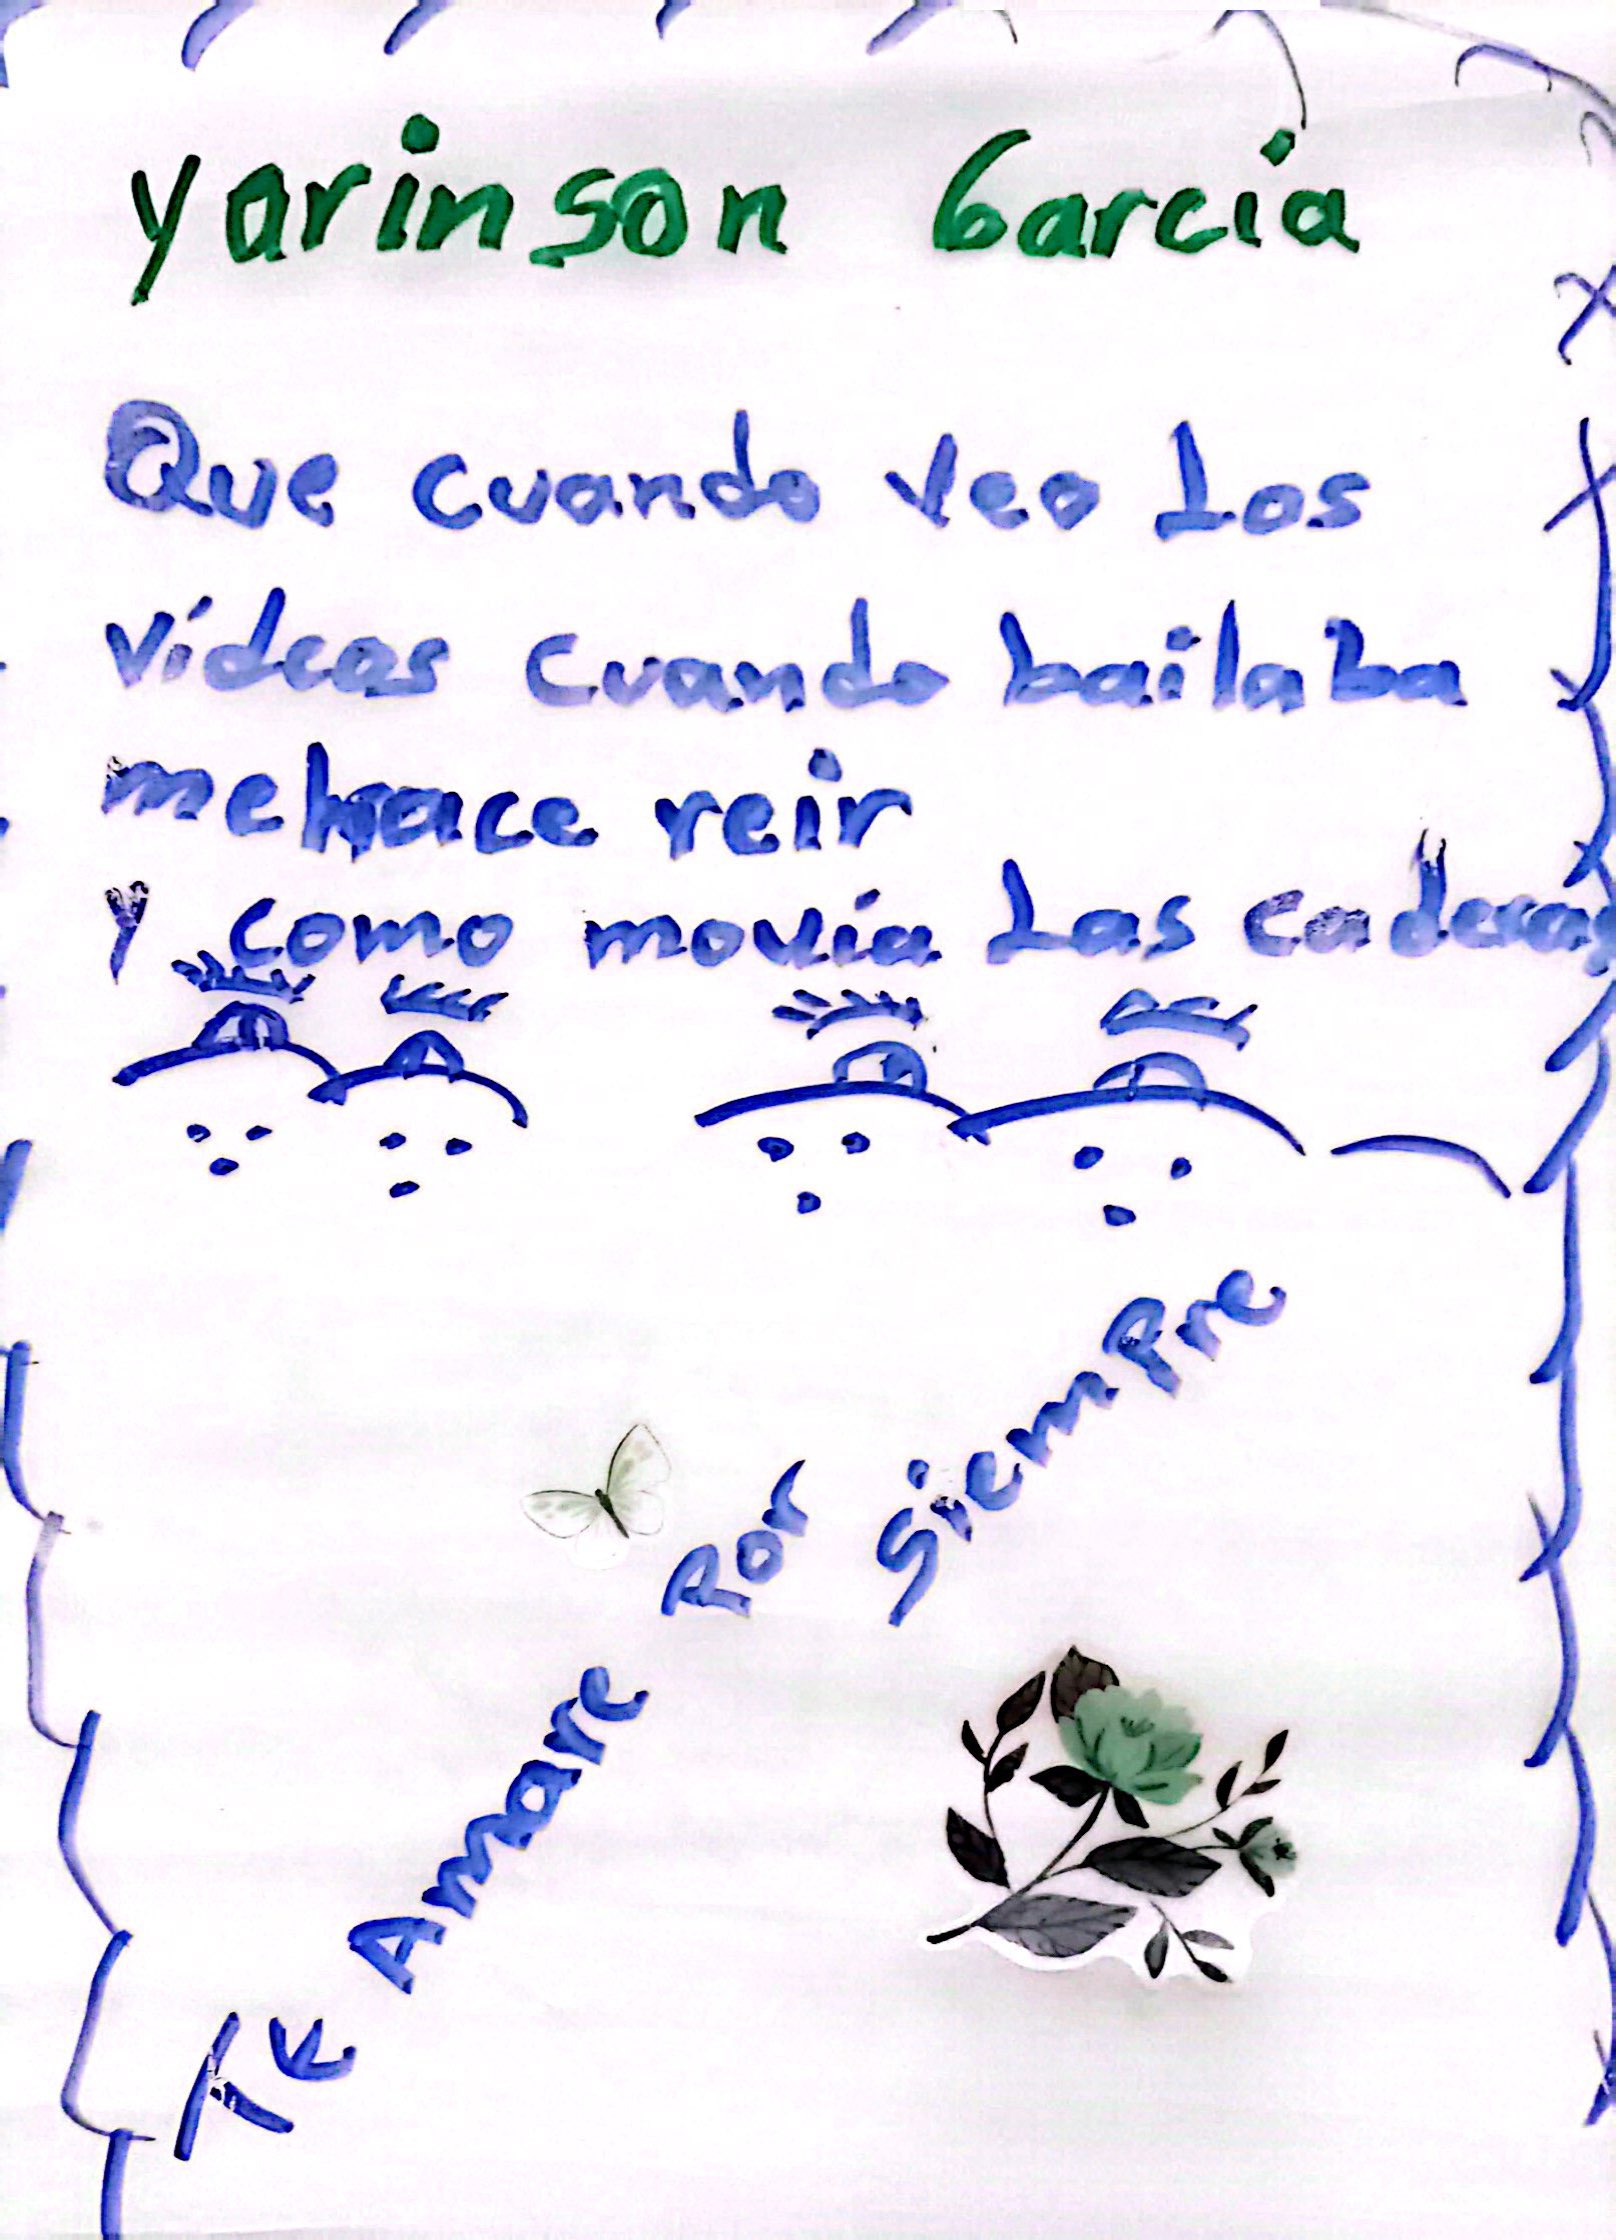 Yarinson Garcia
Que cuando veo Los
vídeos cuando bailaba
mehace reir
Y como movía Las caderas
Te Amare Por Siempre